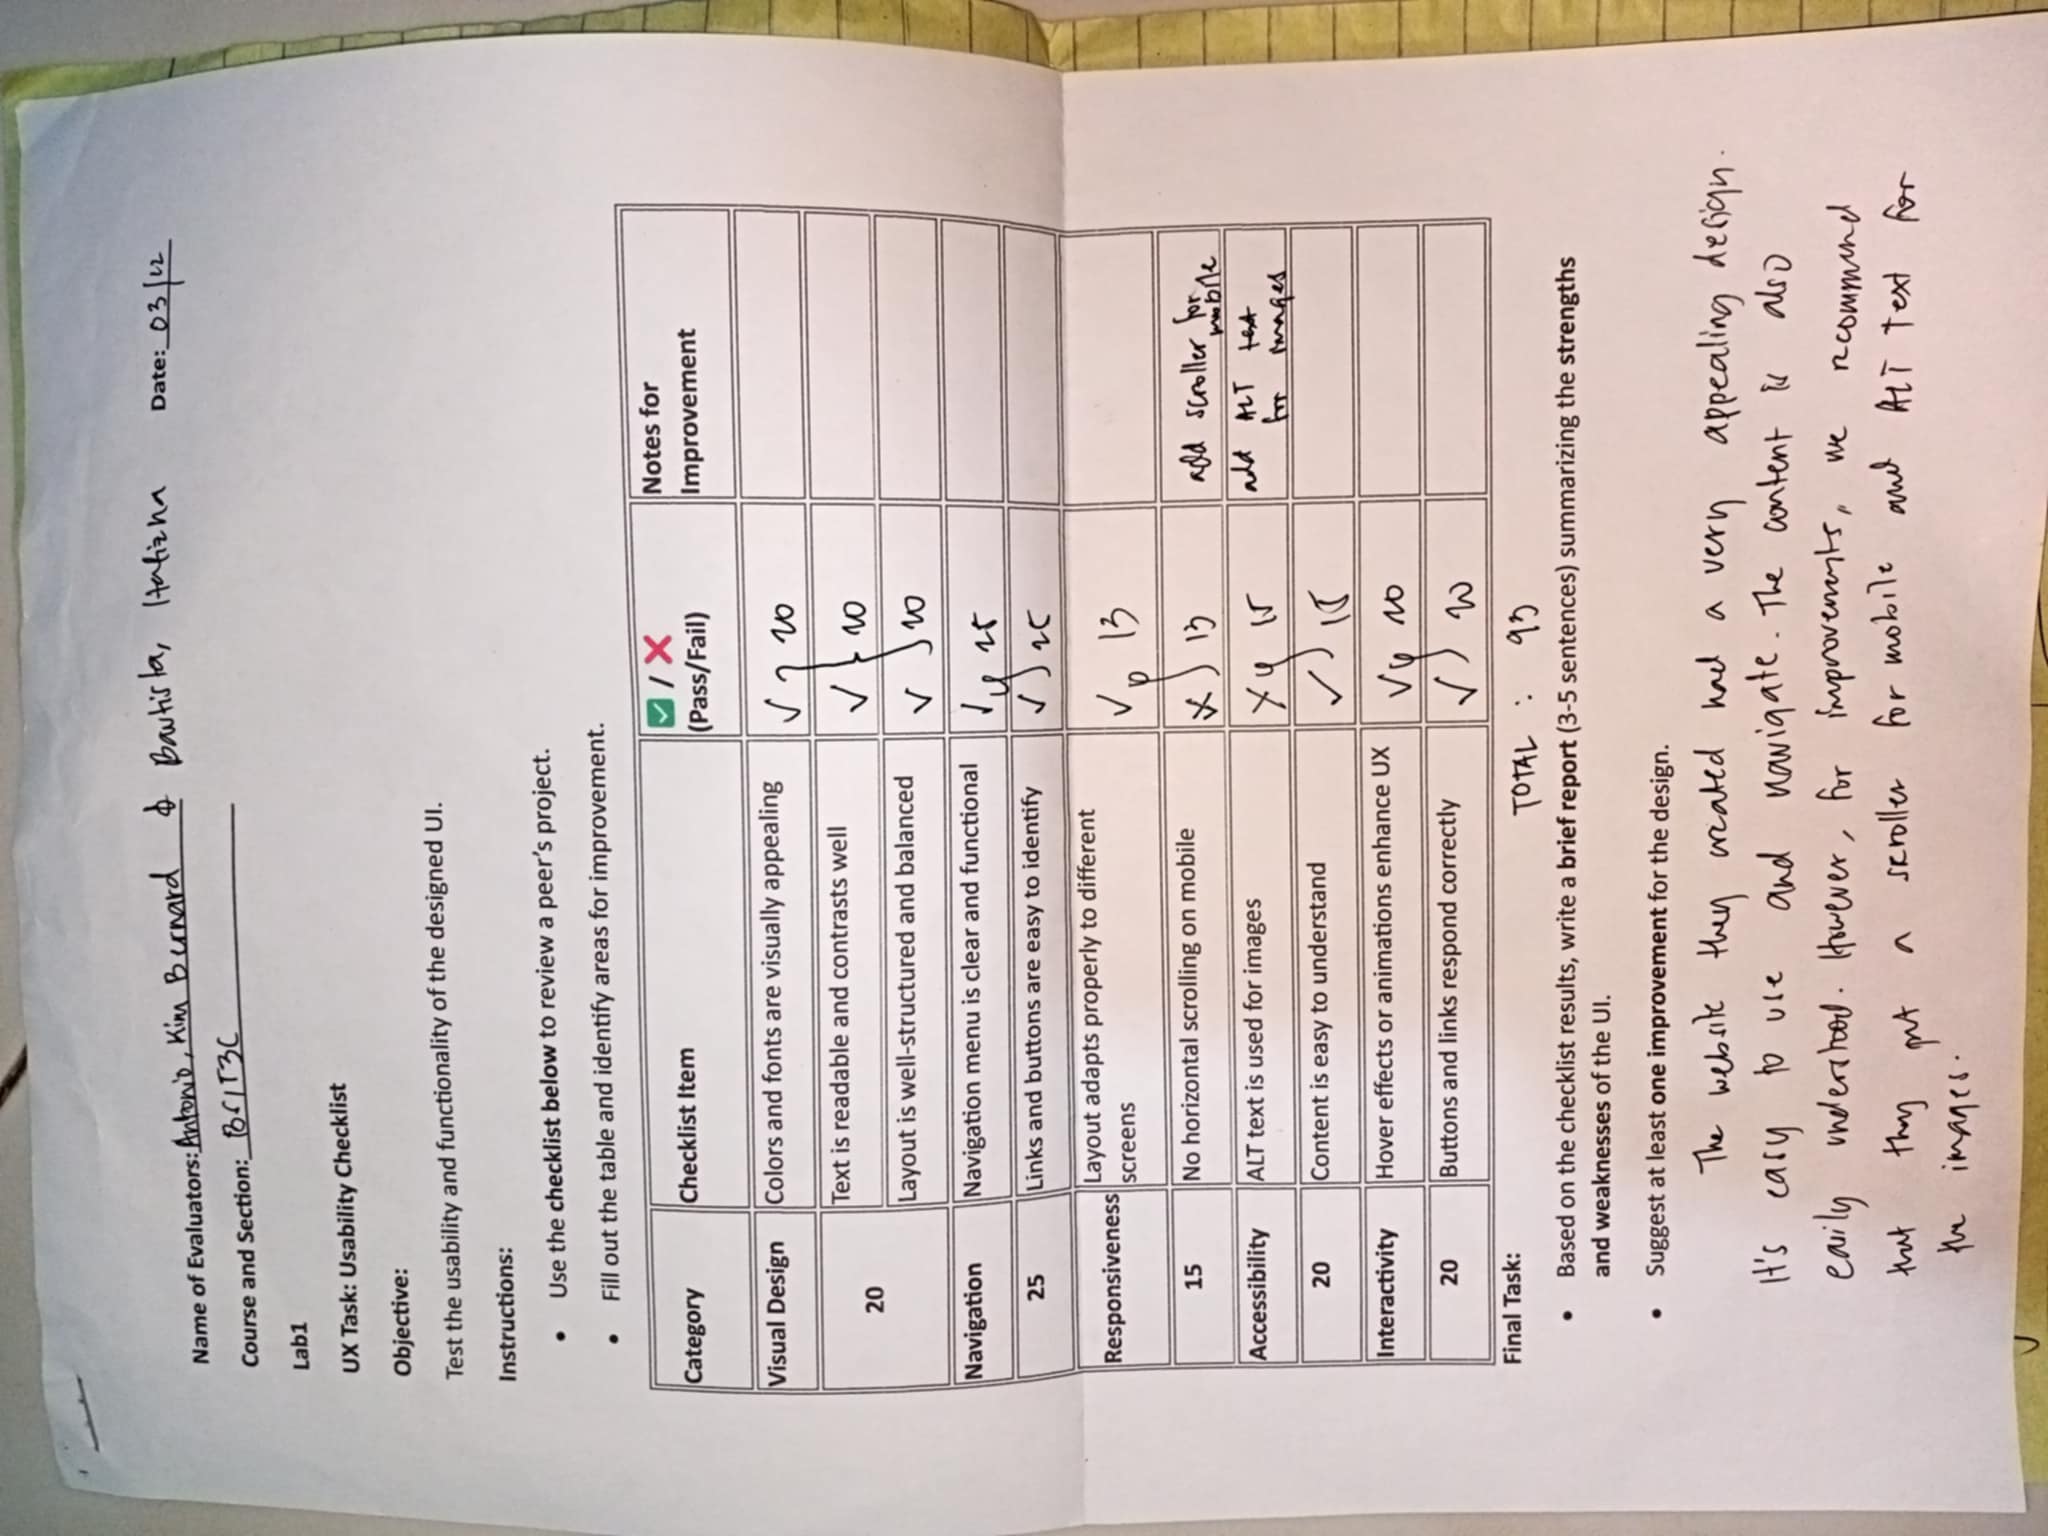 Name of Evaluators: Antonio, Kim Bernard & Bautista, Hafizha Date: 03/12
Course and Section: BSIT3C
Lab1
UX Task: Usability Checklist
Objective:
Test the usability and functionality of the designed UI.
Instructions:
• Use the checklist below to review a peer's project.
• Fill out the table and identify areas for improvement.
Category Checklist Item ✅ / ❌ (Pass/Fail) Notes for Improvement
Visual Design Colors and fonts are visually appealing ✓ 20
Text is readable and contrasts well ✓ 20
20
Layout is well-structured and balanced ✓ 20
Navigation Navigation menu is clear and functional ✓ 25
25 Links and buttons are easy to identify ✓ 25
Responsiveness Layout adapts properly to different screens ✓ 13
15 No horizontal scrolling on mobile X 13 add scroller for mobile
Accessibility ALT text is used for images X 15 add ALT text for images
20 Content is easy to understand ✓ 15
Interactivity Hover effects or animations enhance UX ✓ 20
20 Buttons and links respond correctly ✓ 20
Final Task: TOTAL : 93
• Based on the checklist results, write a brief report (3-5 sentences) summarizing the strengths
and weaknesses of the UI.
• Suggest at least one improvement for the design.
The website they created had a very appealing design.
It's easy to use and navigate. The content is also
easily understood. However, for improvements, we recommend
that they put a scroller for mobile and ALT Text for
the images.